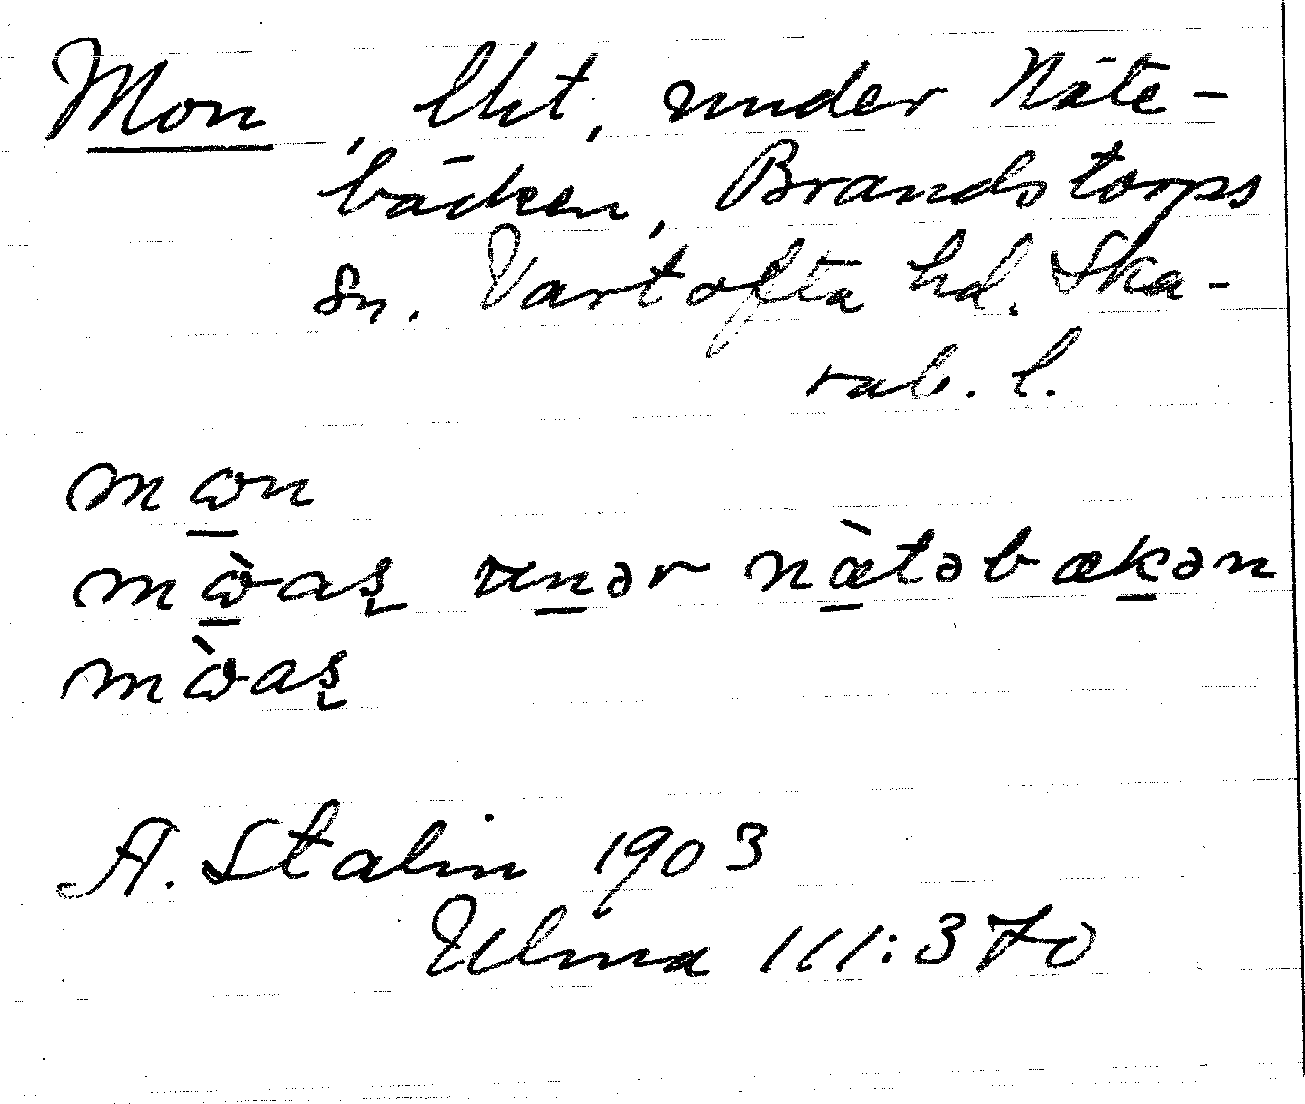 Mon, lht, under Näte-
bäcken, Brandstorps
sn. Vartofta hd. Ska-
rab. l.
mɷn
mɷ̀aʂ unər næ̀təbækən
mɷ̀aʂ
A. Stalin 1903
Ulma 111:370